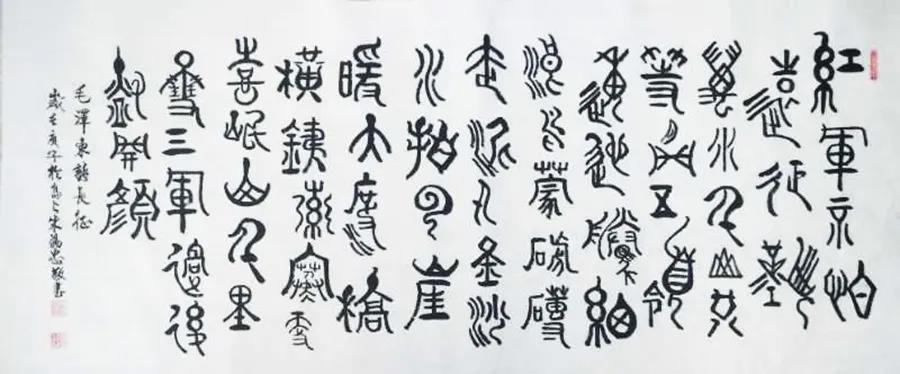 紅軍不怕
遠征難
萬水千山只
等閒五嶺
逶迤騰細
浪烏蒙磅礴
走泥丸金沙
水拍雲崖
暖大渡橋
橫鐵索寒更
喜岷山千里
雪三軍過後
盡開顏
毛澤東詩長征
歲在庚子 宋 忠敬書